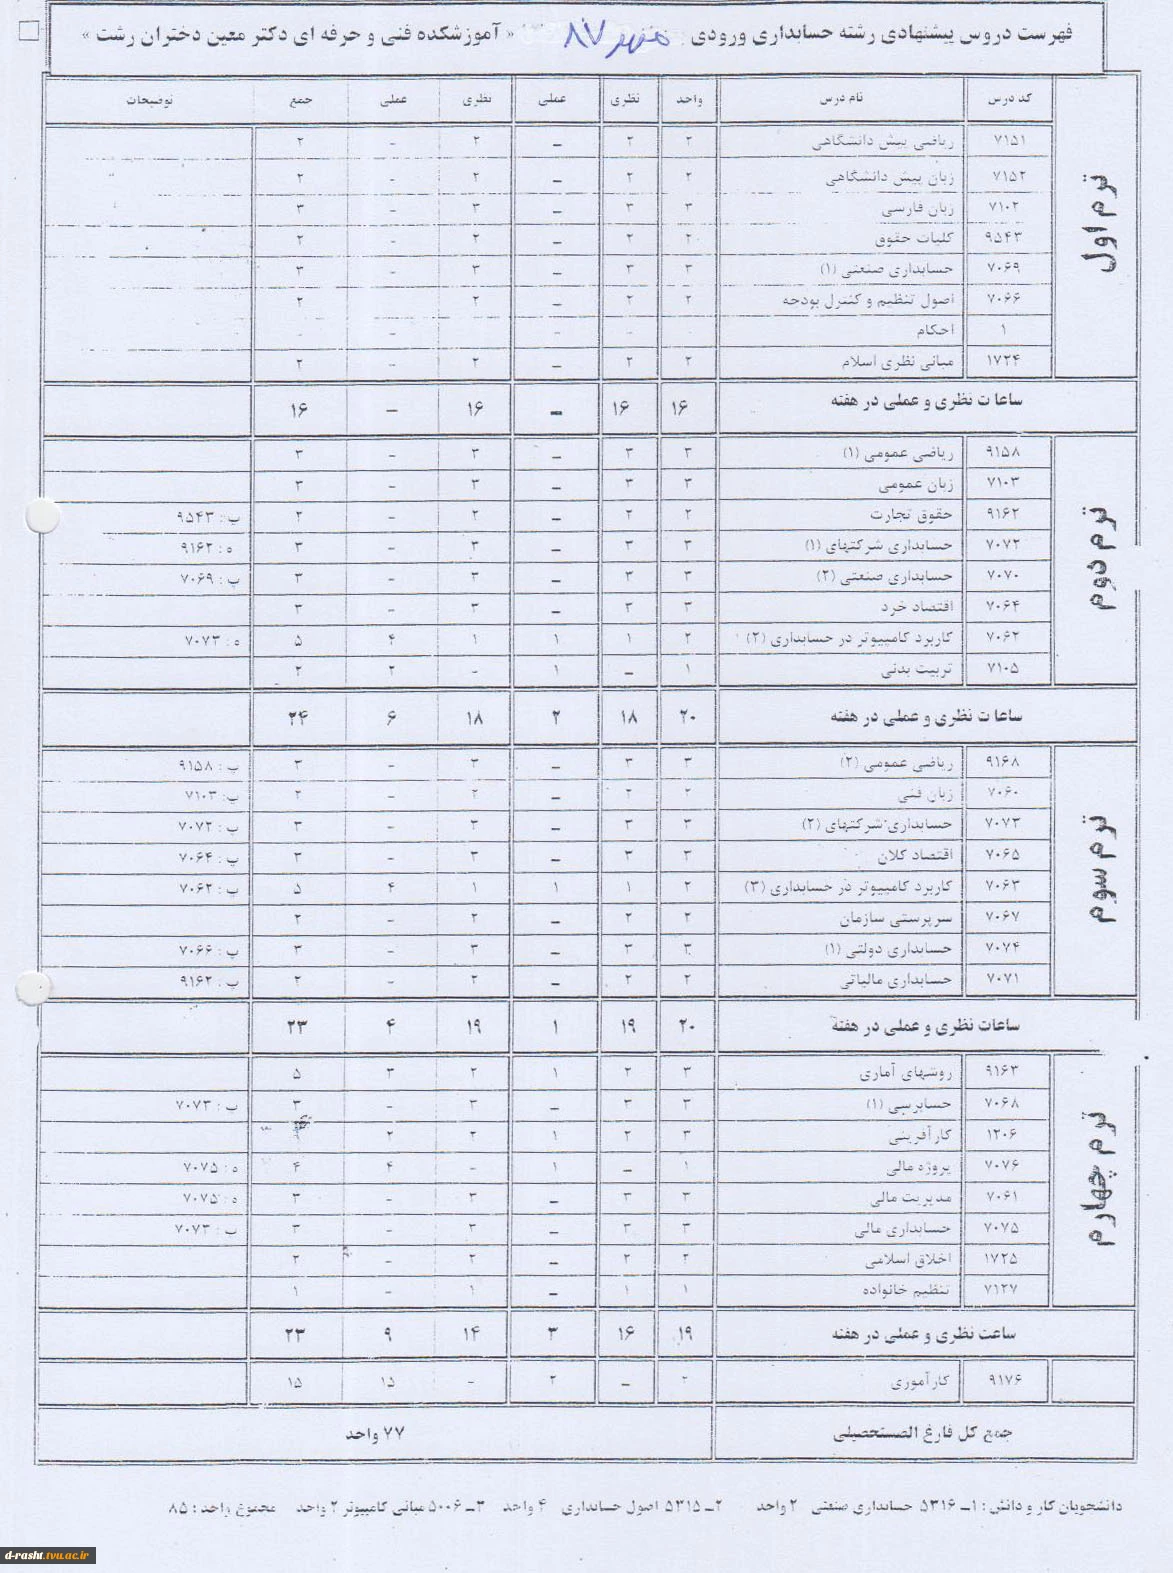 فهرست دروس پیشنهادی رشته حسابداری ورودی مهر ۸۷ « آموزشکده فنی و حرفه ای دکتر معین دختران رشت »
کد درس نام درس واحد نظری عملی نظری عملی جمع توضیحات
ترم اول
۷۱۵۱ ریاضی پیش دانشگاهی ۲ ۲ – ۲ – ۲
۷۱۵۲ زبان پیش دانشگاهی ۲ ۲ – ۲ – ۲
۷۱۰۲ زبان فارسی ۳ ۳ – ۳ – ۳
۹۵۴۳ کلیات حقوق ۲ ۲ – ۲ – ۲
۷۰۶۹ حسابداری صنعتی (۱) ۳ ۳ – ۳ – ۳
۷۰۶۶ اصول تنظیم و کنترل بودجه ۲ ۲ – ۲ – ۲
۱ احکام - - - - - -
۱۷۲۴ مبانی نظری اسلام ۲ ۲ – ۲ – ۲
ساعات نظری و عملی در هفته ۱۶ ۱۶ – ۱۶ – ۱۶
ترم دوم
۹۱۵۸ ریاضی عمومی (۱) ۳ ۳ – ۳ – ۳
۷۱۰۳ زبان عمومی ۳ ۳ – ۳ – ۳
۹۱۶۲ حقوق تجارت ۲ ۲ – ۲ – ۲ پ : ۹۵۴۳
۷۰۷۲ حسابداری شرکتهای (۱) ۳ ۳ – ۳ – ۳ ه : ۹۱۶۲
۷۰۷۰ حسابداری صنعتی (۲) ۳ ۳ – ۳ – ۳ پ : ۷۰۶۹
۷۰۶۴ اقتصاد خرد ۳ ۳ – ۳ – ۳
۷۰۶۲ کاربرد کامپیوتر در حسابداری (۲) ۲ ۱ ۱ ۱ ۴ ۵ ه : ۷۰۷۳
۷۱۰۵ تربیت بدنی ۱ – ۱ - ۲ ۲
ساعات نظری و عملی در هفته ۲۰ ۱۸ ۲ ۱۸ ۶ ۲۴
ترم سوم
۹۱۶۸ ریاضی عمومی (۲) ۳ ۳ – ۳ – ۳ پ : ۹۱۵۸
۷۰۶۰ زبان فنی ۲ ۲ – ۲ – ۲ پ : ۷۱۰۳
۷۰۷۳ حسابداری شرکتهای (۲) ۳ ۳ – ۳ – ۳ پ : ۷۰۷۲
۷۰۶۵ اقتصاد کلان ۳ ۳ – ۳ – ۳ پ : ۷۰۶۴
۷۰۶۳ کاربرد کامپیوتر در حسابداری (۳) ۲ ۱ ۱ ۱ ۴ ۵ پ : ۷۰۶۲
۷۰۶۷ سرپرستی سازمان ۲ ۲ – ۲ – ۲
۷۰۷۴ حسابداری دولتی (۱) ۳ ۳ – ۳ – ۳ پ : ۷۰۶۶
۷۰۷۱ حسابداری مالیاتی ۲ ۲ – ۲ – ۲ پ : ۹۱۶۲
ساعات نظری و عملی در هفته ۲۰ ۱۹ ۱ ۱۹ ۴ ۲۳
ترم چهارم
۹۱۶۳ روشهای آماری ۳ ۲ ۱ ۲ ۳ ۵
۷۰۶۸ حسابرسی (۱) ۳ ۳ – ۳ – ۳ پ : ۷۰۷۳
۱۲۰۶ کارآفرینی ۳ ۲ ۱ ۲ ۲
۷۰۷۶ پروژه مالی ۱ – ۱ - ۴ ۴ ه : ۷۰۷۵
۷۰۶۱ مدیریت مالی ۳ ۳ – ۳ – ۳ ه : ۷۰۷۵
۷۰۷۵ حسابداری مالی ۳ ۳ – ۳ – ۳ پ : ۷۰۷۳
۱۷۲۵ اخلاق اسلامی ۲ ۲ – ۲ – ۲
۷۱۲۷ تنظیم خانواده ۱ ۱ – ۱ – ۱
ساعت نظری و عملی در هفته ۱۹ ۱۶ ۳ ۱۴ ۹ ۲۳
۹۱۷۶ کارآموری ۲ – ۲ - ۱۵ ۱۵
جمع کل فارغ الصتحصیلی ۷۷ واحد
دانشجویان کار و دانش : ۱ـ ۵۳۱۶ حسابداری صنعتی ۲ واحد ۲ـ ۵۳۱۵ اصول حسابداری ۴ واحد ۳ـ ۵۰۰۶ مبانی کامپیوتر ۲ واحد مجموع واحد : ۸۵
d-rasht.tvu.ac.ir